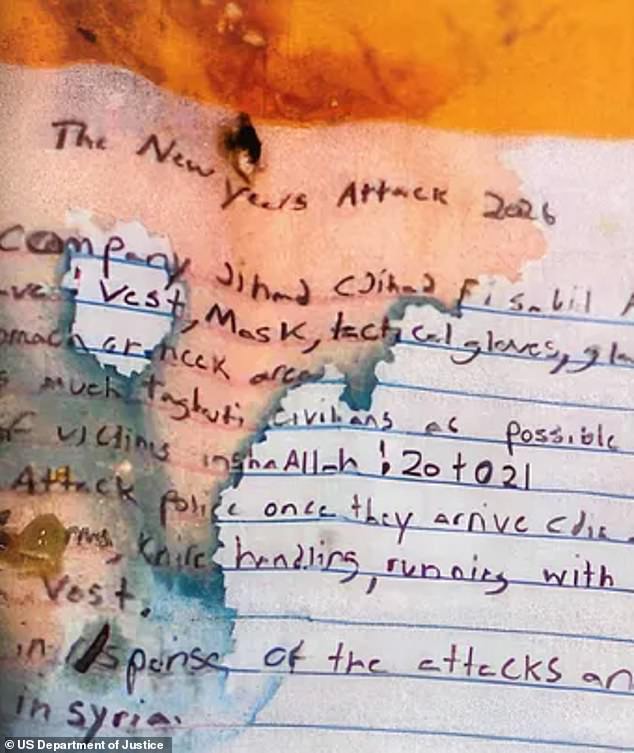 The New Years Attack 2026
Company Jihad (Jihad Fisabil
Vest, Mask, tactical gloves,
or neck area
much taghuti civilians as possible
of victims inshaAllah : 20 to 21
Attack police once they arrive (die
knife handling, running with
Vest.
in response of the attacks
in Syria.
© US Department of Justice